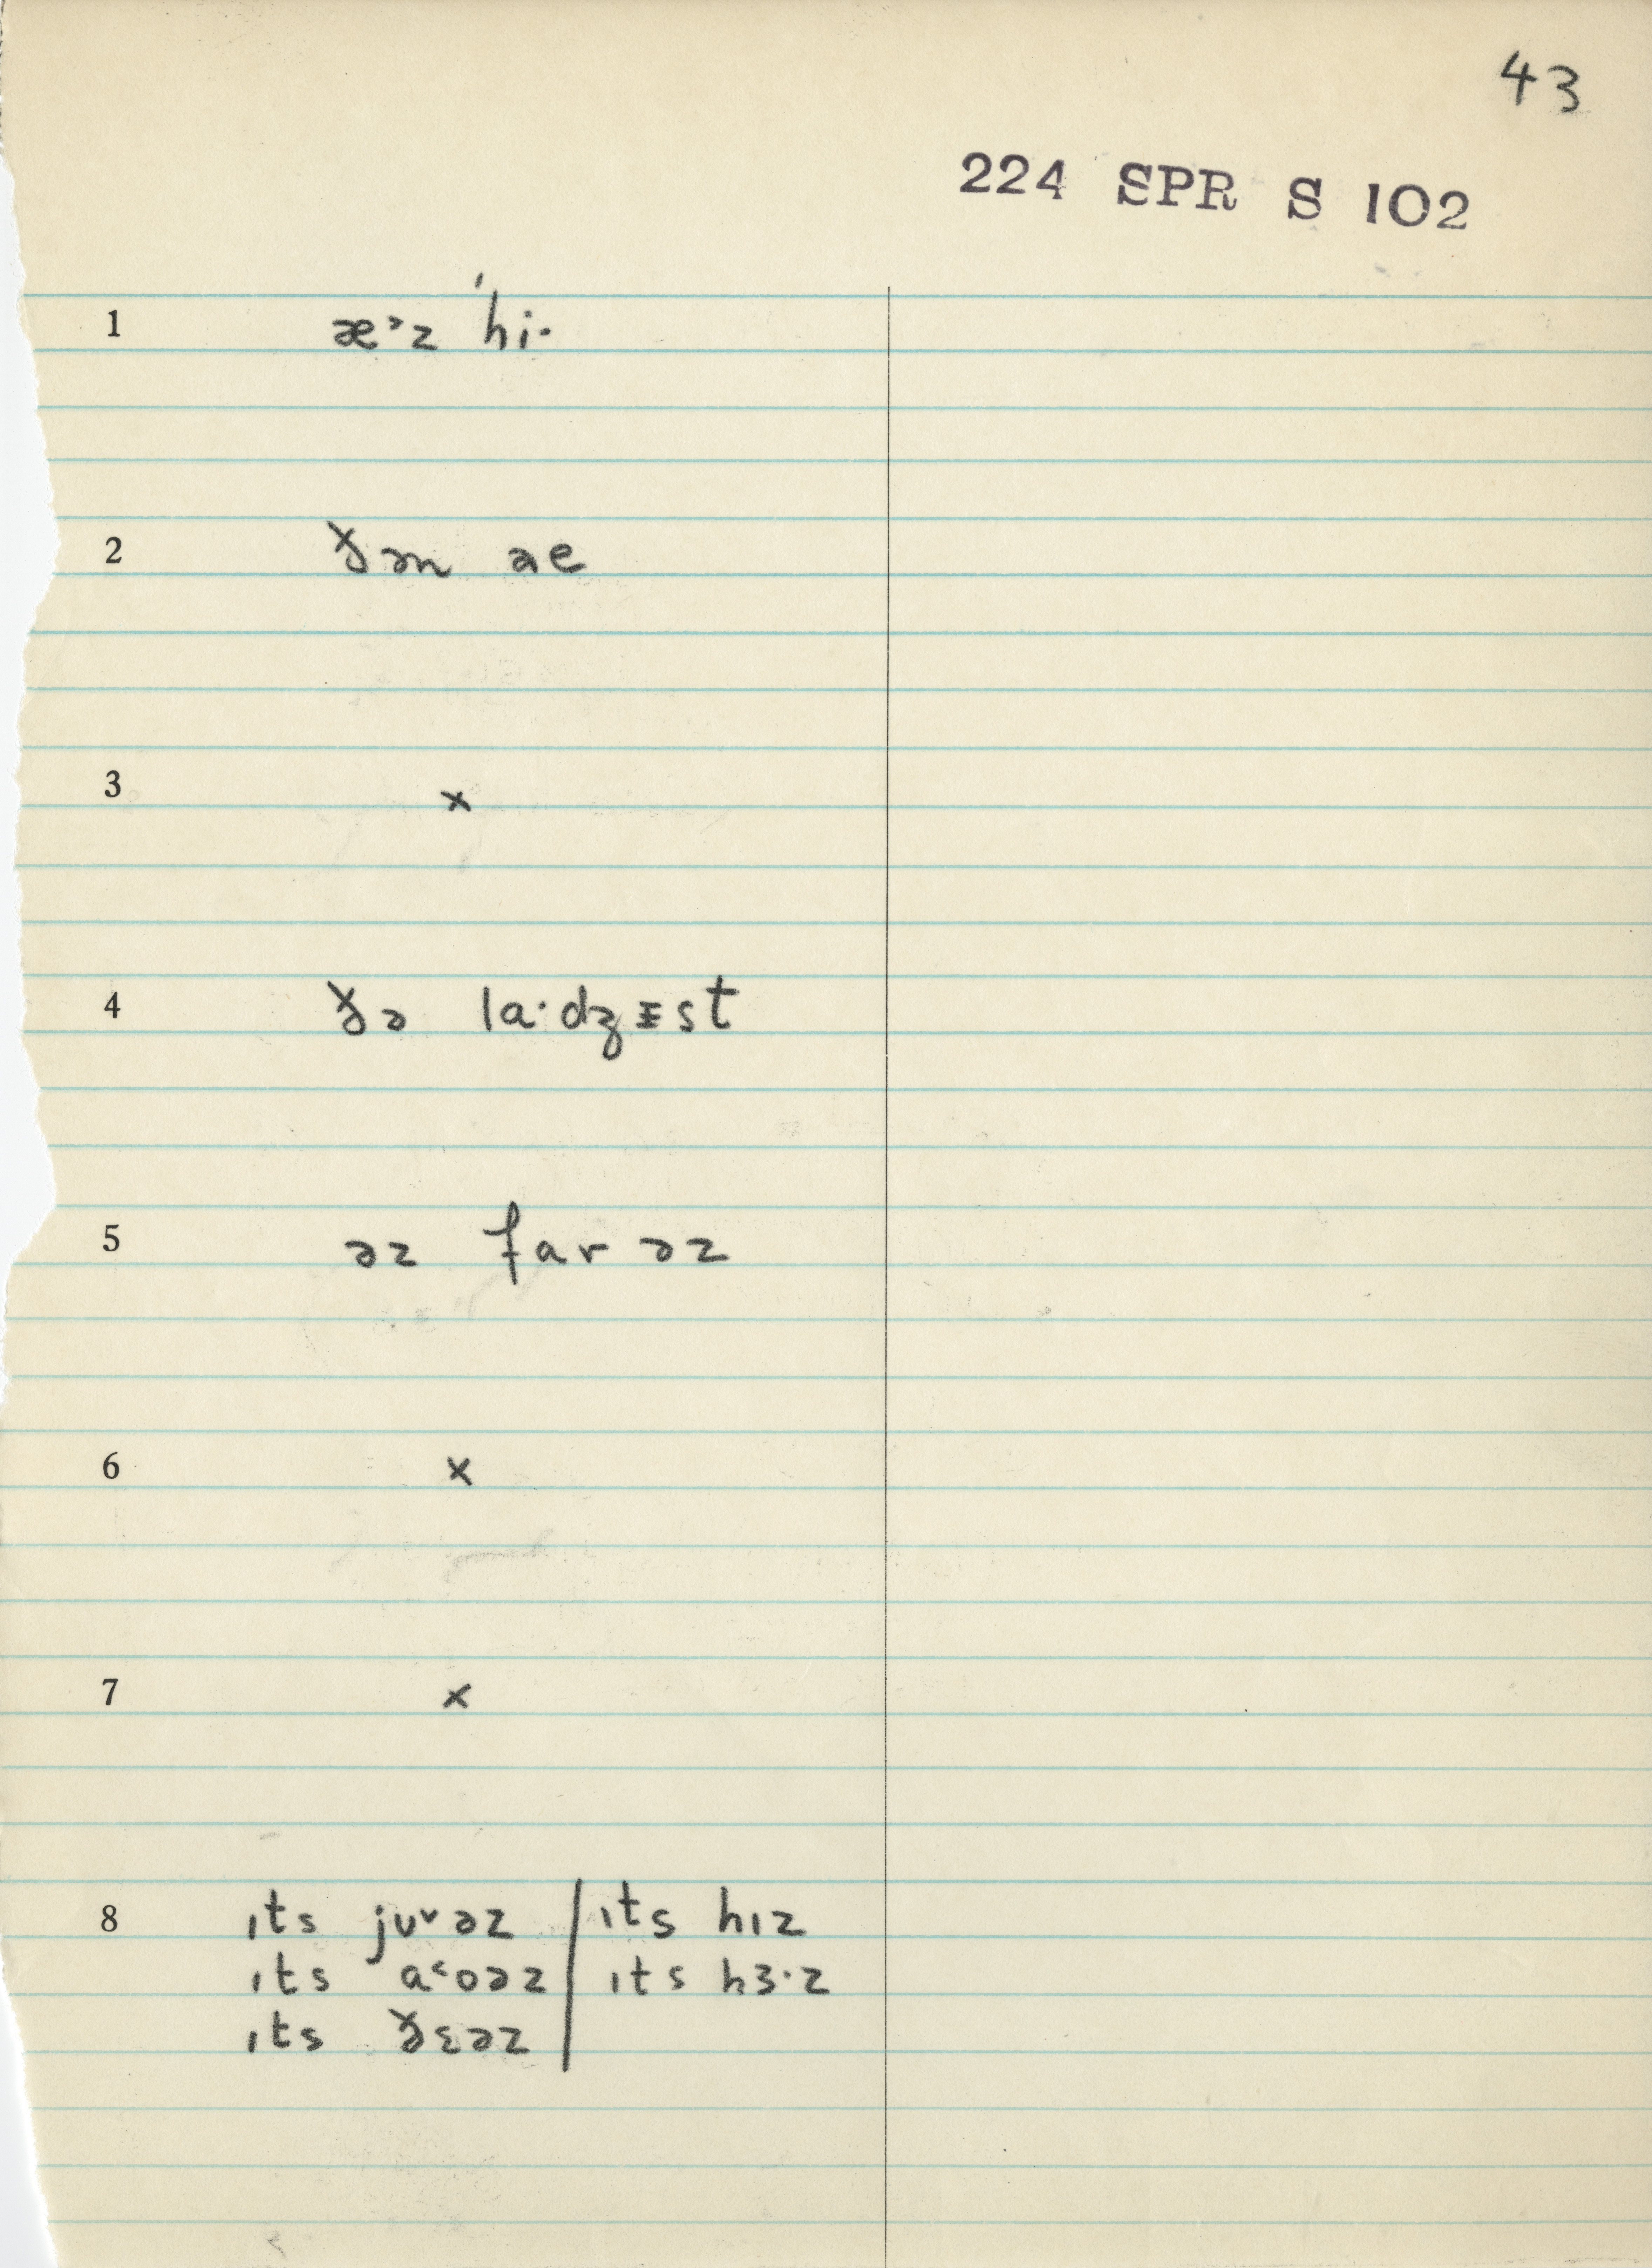 43
224 SPR S 102
1 æ˃z ˈhi·
2 ðən ae
3 ×
4 ðə la·dʒɪst
5 əz far əz
6 ×
7 ×
8 ɪts juᵛəz | ɪts hɪz
ɪts a˂oəz | ɪts hɜ·z
ɪts ðɛəz |